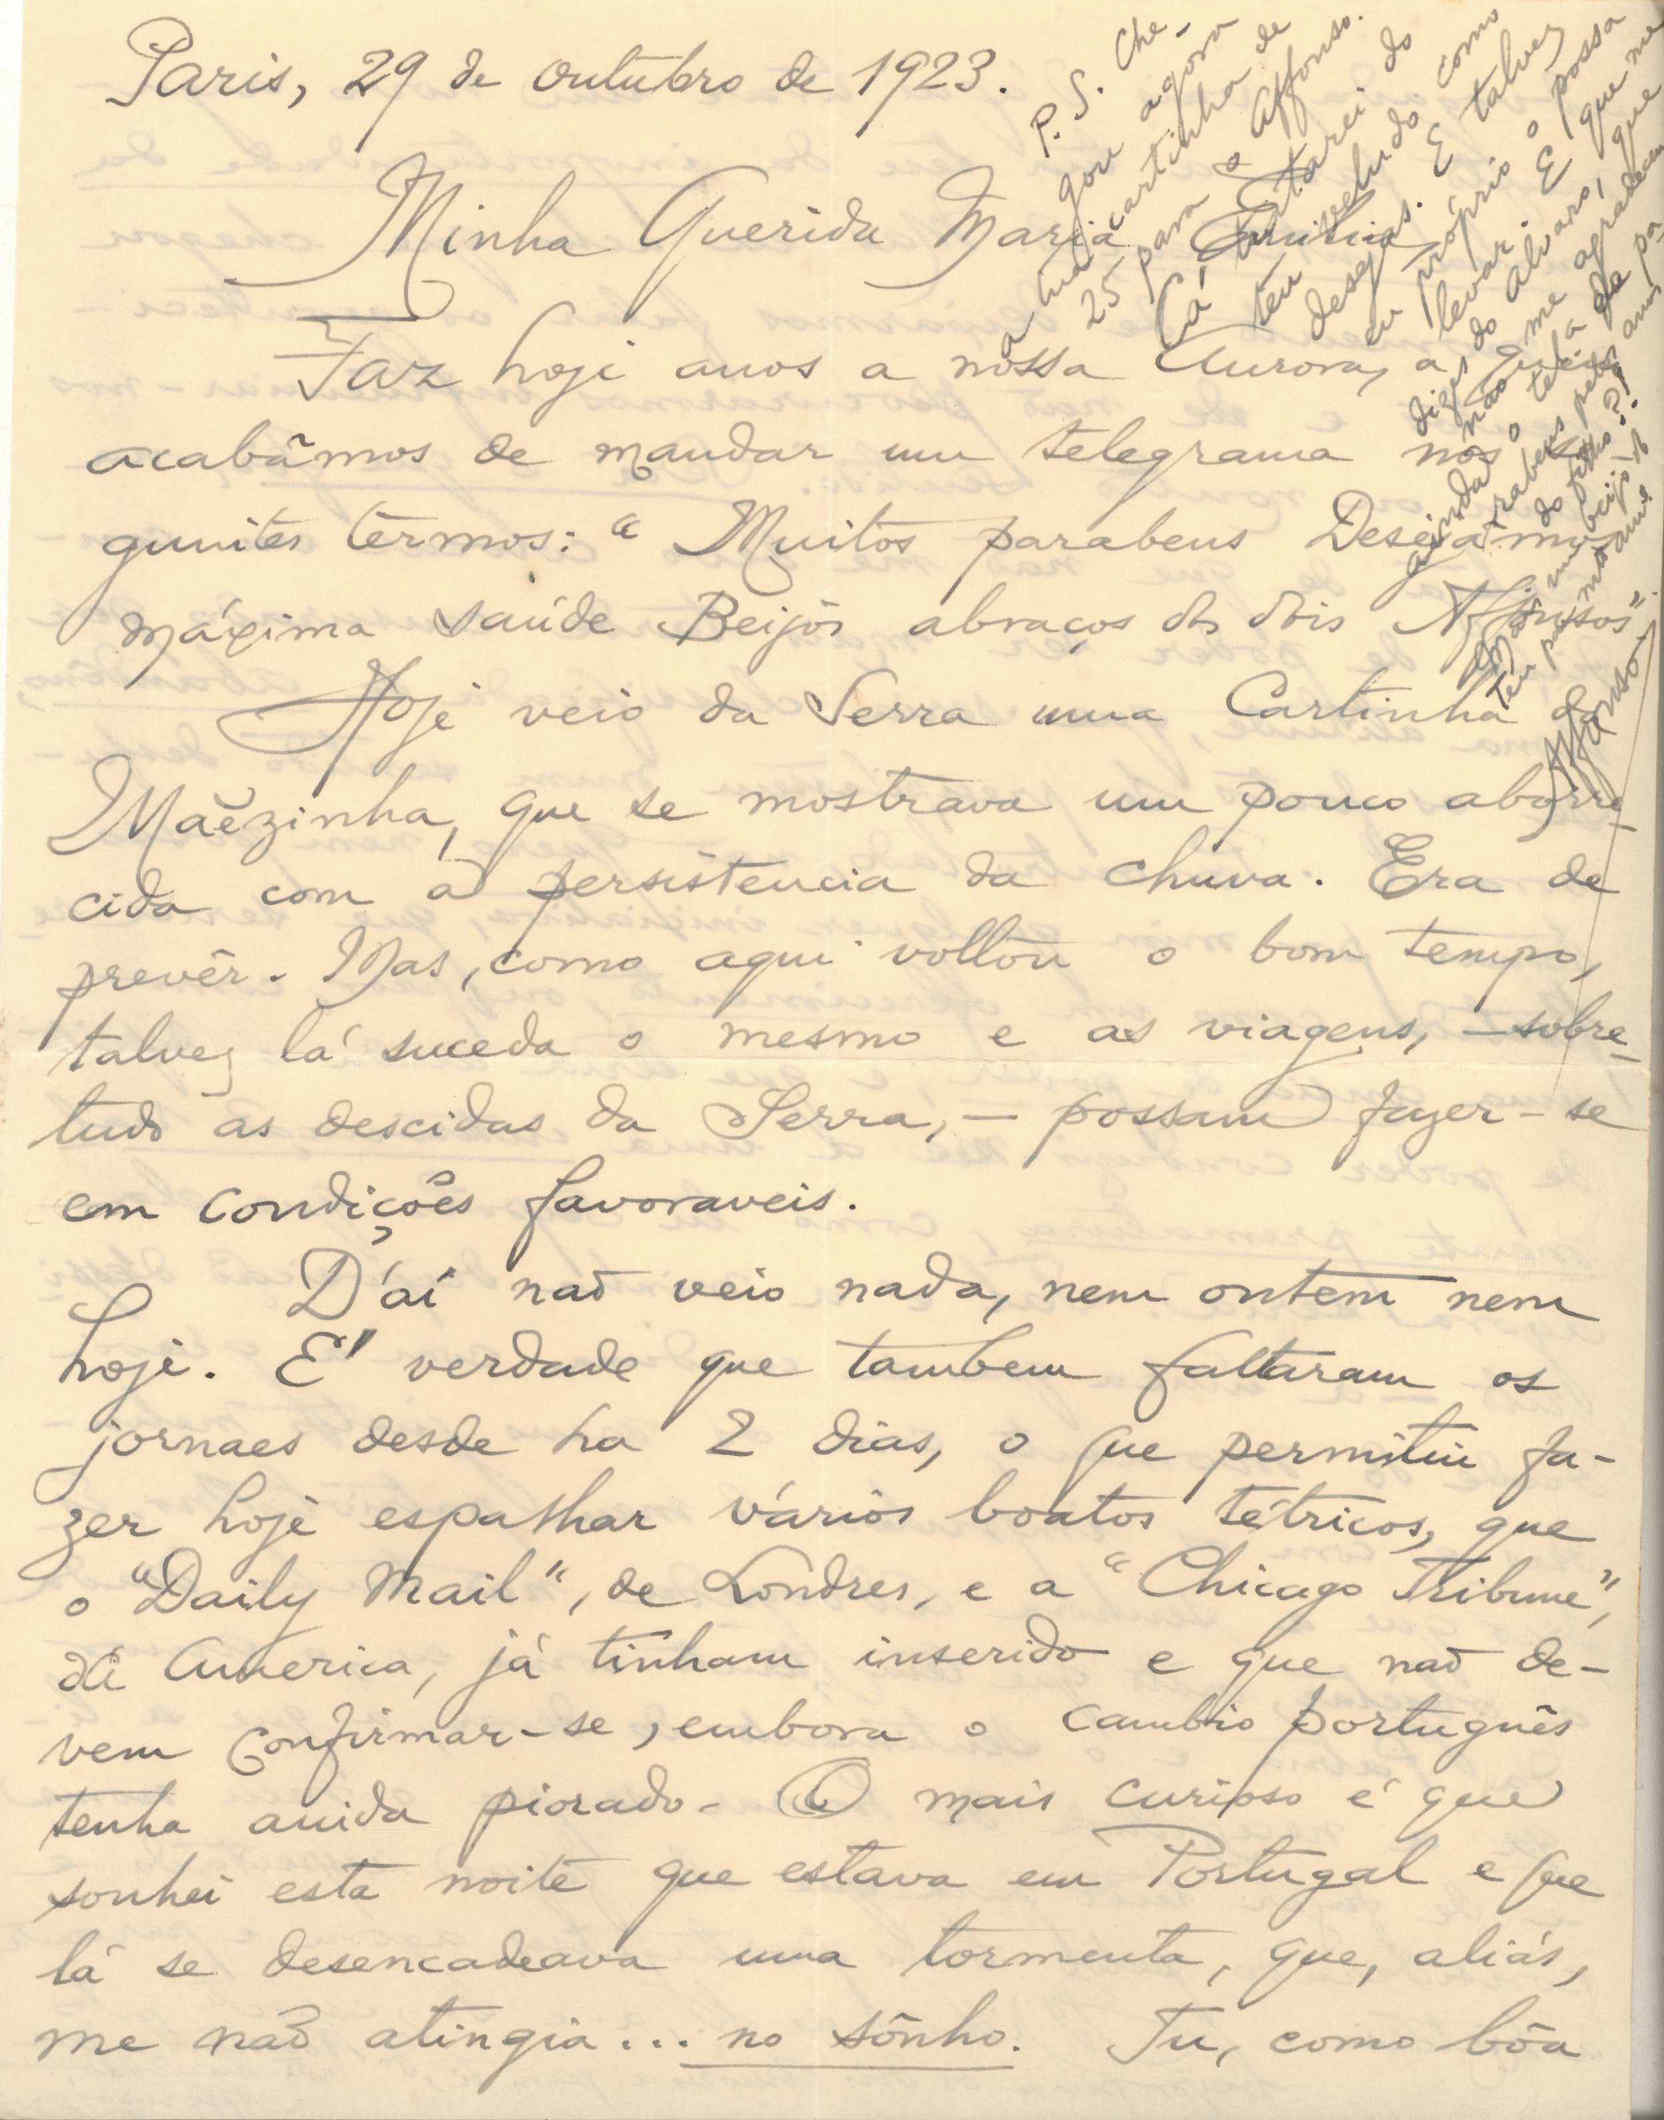 Paris, 29 de outubro de 1923.
Minha Querida Maria Emilia,
Faz hoje anos a nossa Aurora, a quem
acabâmos de mandar um telegrama nos se-
guintes têrmos: "Muitos parabens Desejamos
máxima saúde Beijos abraços dos dois Affonsos".
Hoje veio da Serra uma Cartinha da
Mãezinha, que se mostrava um pouco aborre-
cida com a persistencia da chuva. Era de
prevêr. Mas, como aqui voltou o bom tempo,
talvez lá suceda o mesmo e as viagens, - sobre-
tudo as descidas da Serra, - possam fazer-se
em condições favoraveis.
D'aí não veio nada, nem ontem nem
hoje. E' verdade que tambem faltaram os
jornaes desde ha 2 dias, o que permitiu fa-
zer hoje espalhar vários boatos tétricos, que
o "Daily Mail", de Londres, e a "Chicago Tribune",
da America, já tinham inserido e que não de-
vem confirmar-se, embora o cambio português
tenha ainda piorado. O mais curioso é que
sonhei esta noite que estava em Portugal e que
lá se desencadeava uma tormenta, que, aliás,
me não atingia... no sônho. Tu, como bôa
P.S. Che-
gou agora
a tua cartinha de
25 para o Affonso.
Cá tratarei do
teu veludo como
desejas. E talvez
eu próprio o possa
levar. E que me
dizes do Alvaro, que
ainda não me agradeceu
o tel.a de pa-
rabens pelos anos
do filho?!
Mais um beijo do
teu pai mto am.e
Affonso.